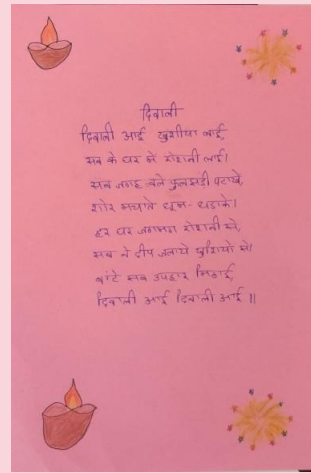 दिवाली
दिवाली आई खुशीया लाई,
सब के घर में रोशनी लाई।
सब जगह चले फुलझड़ी पटाखे,
शोर मचाते धूम-धड़ाके।
हर घर जगमग रोशनी से,
सब ने दीप जलाये खुशियों से।
बांटे सब उपहार मिठाई,
दिवाली आई दिवाली आई॥